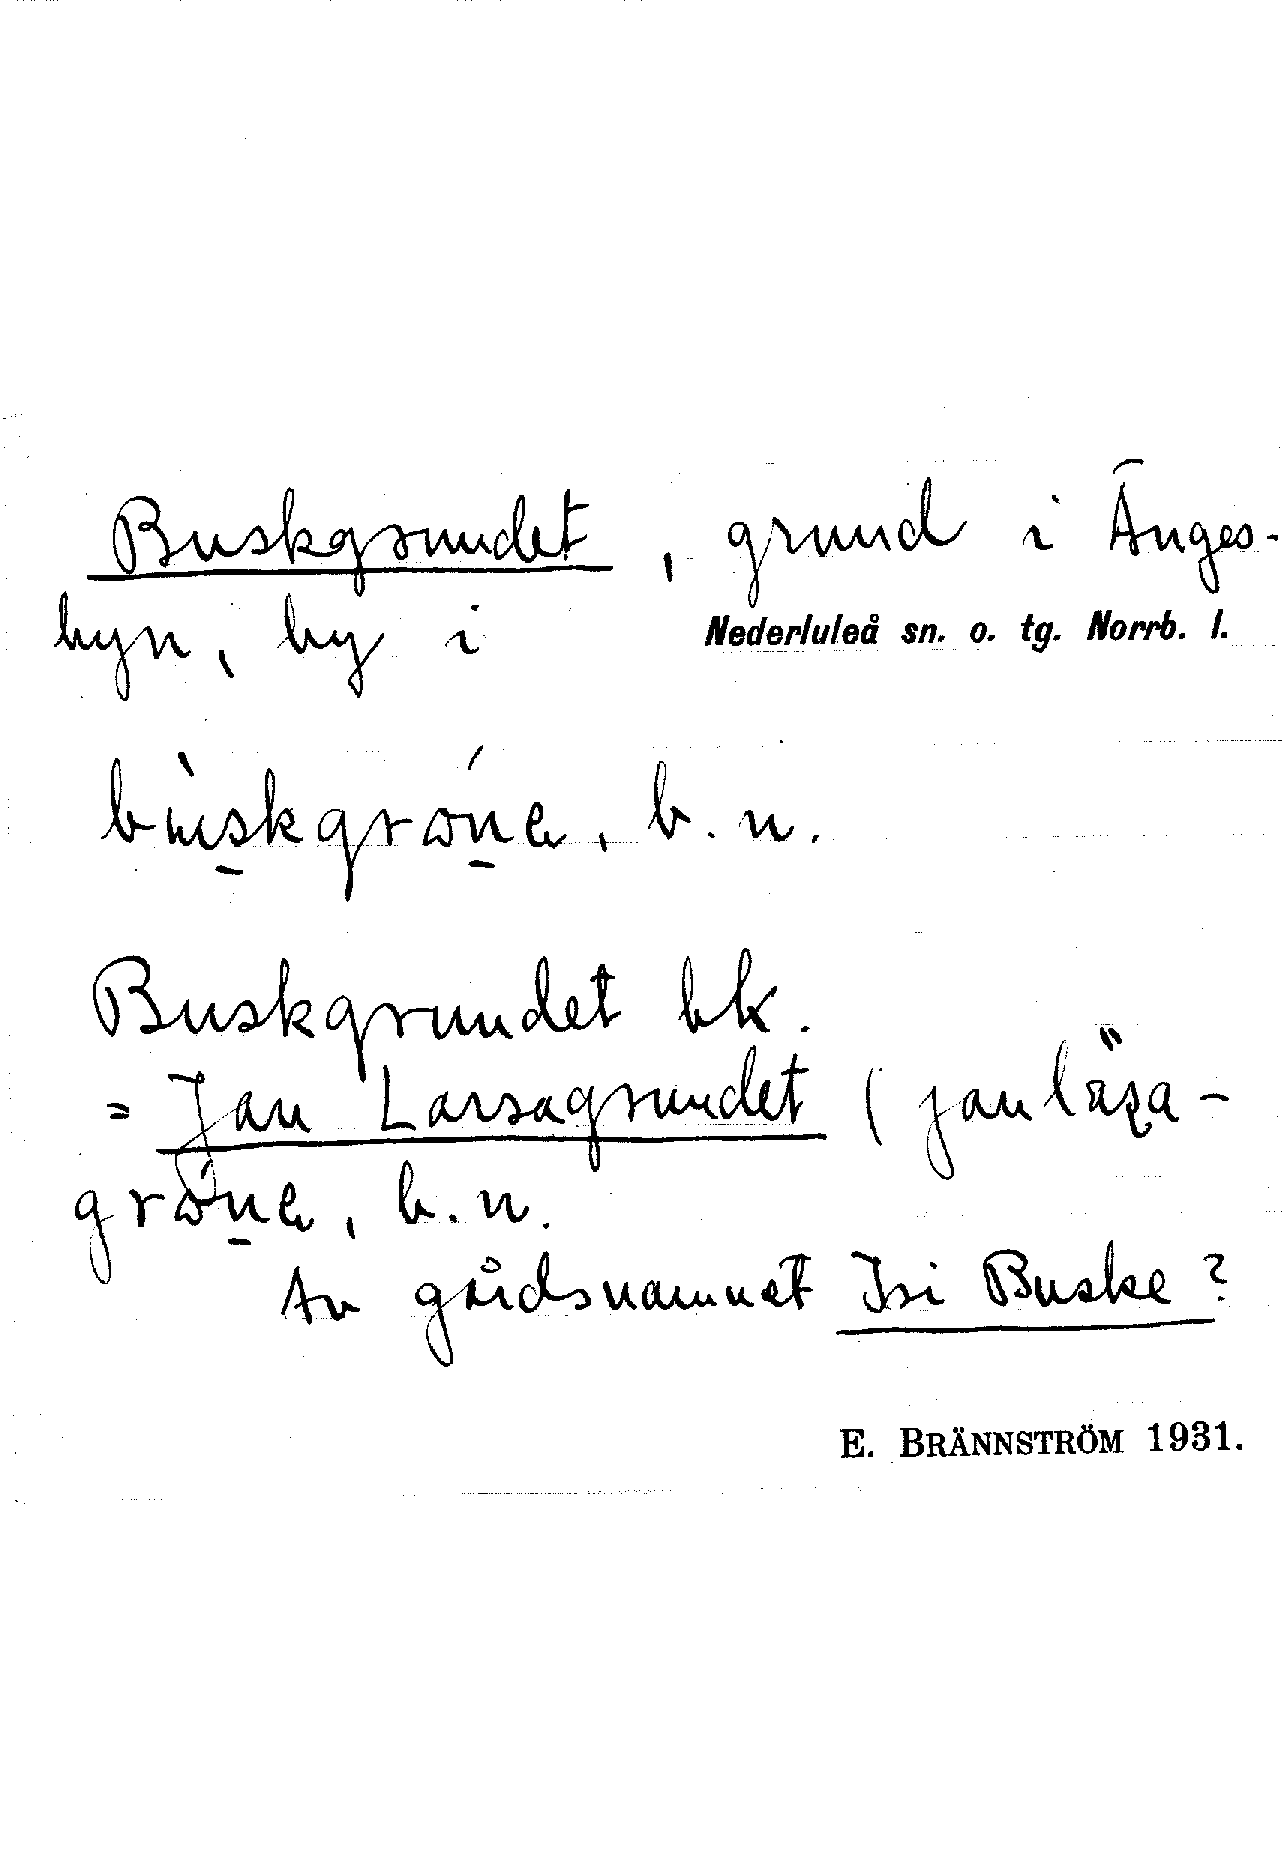 Buskgrundet, grund i Änges-
byn, by i Nederluleå sn. o. tg. Norrb. l.
bùskgrów̲na, b. n.
Buskgrundet bk.
= Jan Larsagrundet (jan
b. n.
Av gårdsnamnet Isi Buske?
E. BRÄNNSTRÖM 1931.